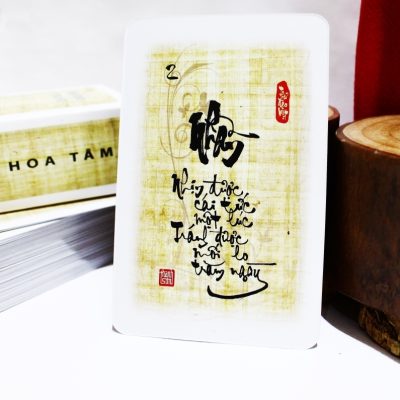 2
Nhẫn
Nhịn được
cái tức
một lúc
Tránh được
mối lo
trăm ngày
HOA TÂM